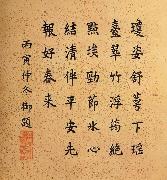 瓊姿舒萼下瑶
臺翠竹浮筠絶
點埃勁節氷心
結清伴平安先
報好春来
丙寅仲冬御題